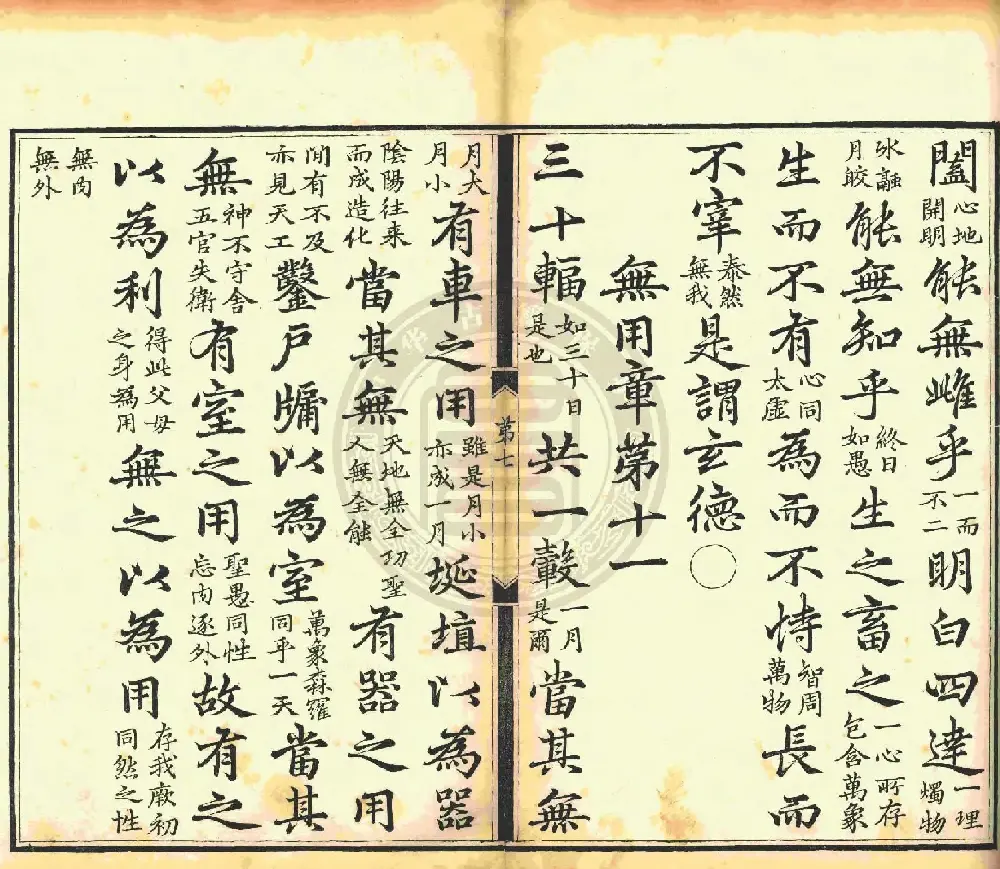 闔心地開明能無雌乎一而不二明白四達一理燭物
氷融月皎能無知乎終日如愚生之畜之一心所存包含萬象
生而不有心同太虛為而不恃智周萬物長而
不宰泰然無我是謂玄德○
無用章第十一
三十輻如三十日是也共一轂一月是爾當其無
第七
月大月小有車之用雖是月小亦成一月埏埴以為器
陰陽往来而成造化當其無天地無全功聖人無全能有器之用
間有不及亦見天工鑿戶牖以為室萬象森羅同乎一天當其
無神不守舍五官失衛有室之用聖愚同性忘內逐外故有之
以為利得此父母之身為用無之以為用存我厥初同然之性
無內無外